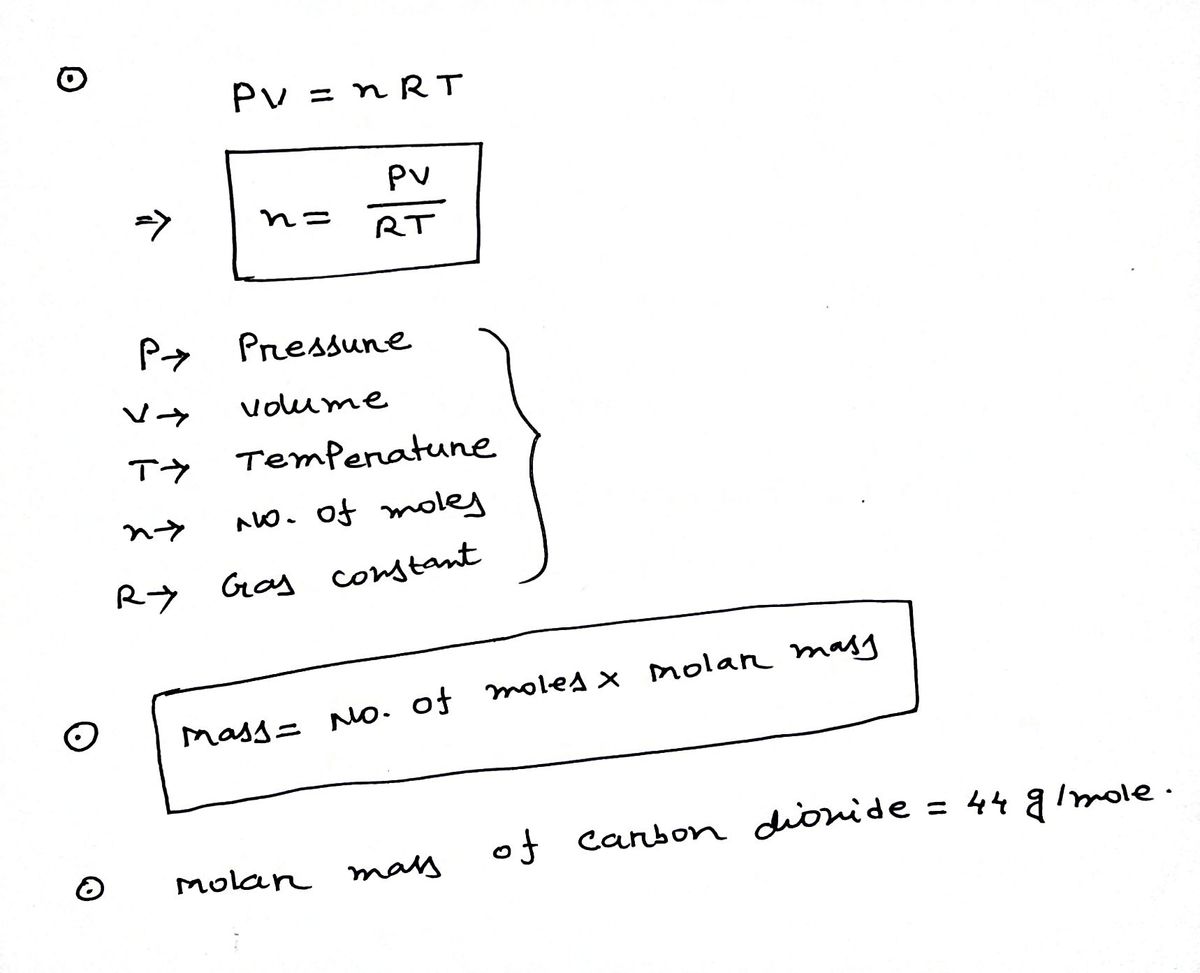 PV = nRT
⇒ n = PV/RT
P→ Pressure
V→ volume
T→ Temperature
n→ No. of moles
R→ Gas constant
mass = No. of moles × molar mass
molar mass of carbon dioxide = 44 g/mole.